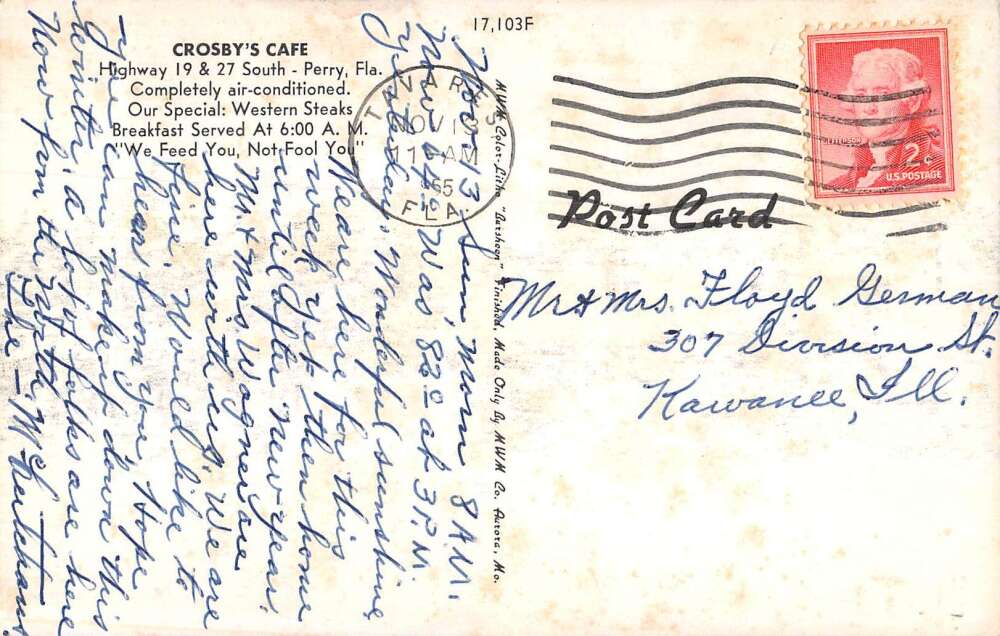 17,103F
CROSBY'S CAFE
Highway 19 & 27 South - Perry, Fla.
Completely air-conditioned.
Our Special: Western Steaks
Breakfast Served At 6:00 A. M.
"We Feed You, Not Fool You"
TAVARES
NOV 1
11 AM
FLA
2¢
U.S. POSTAGE
Post Card
MWM Color-Litho "Aursheen" Finished, Made Only By MWM Co. Aurora, Mo.
Mr & Mrs. Floyd German
307 Division St.
Kawanee, Ill.
Nov. 13 Sun, Morn 8 A.M.
Now 64° Was 82° at 3 P.M
Yesterday, Wonderful sunshine
We are here for this
week yet then home
until after New year.
Mr & Mrs Wagner are
here with us. We are
fine. Would like to
hear from you, Hope
you can make it down this
winter, a lot of folks are here
now from the North.
The